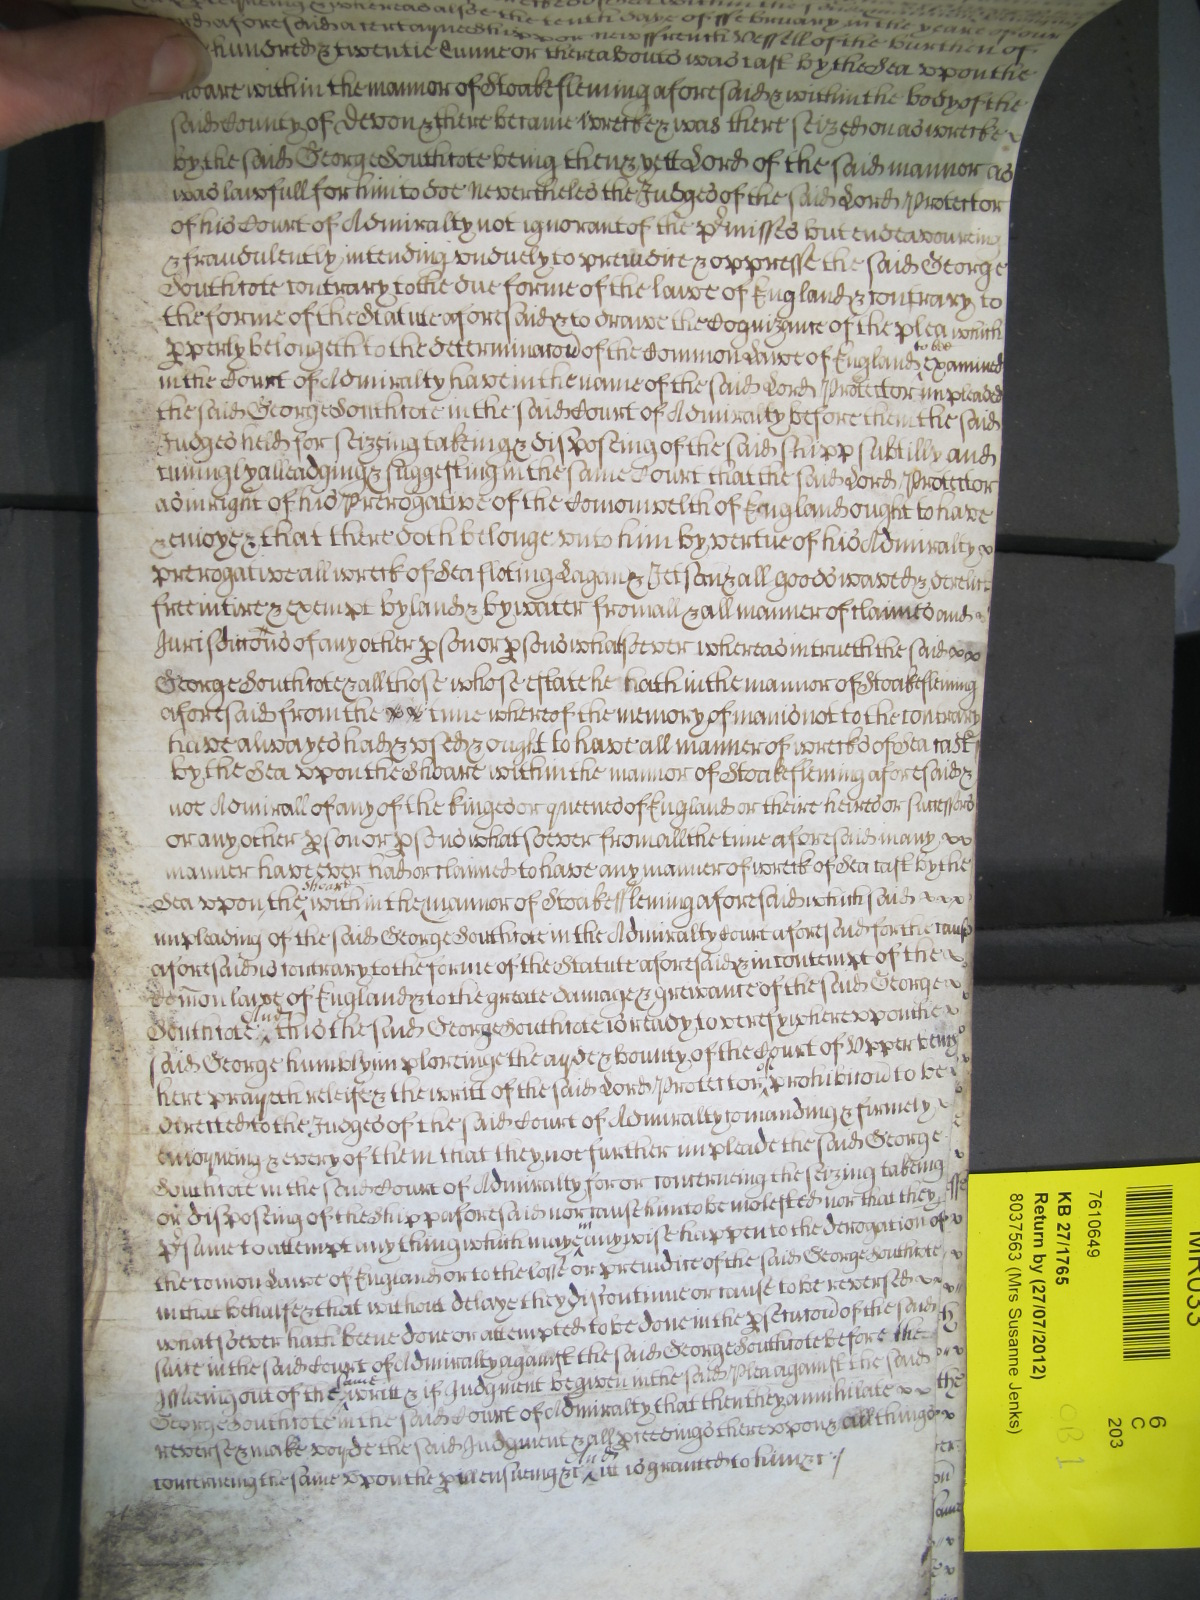 whereas alsoe the tenth daye of ffebruary in the yeare of our
Lord aforesaid a certayne shipp or new ffrench Vessell of the burthen of
hundred & twentie Tunne or thereabouts was cast by the Sea vpon the
shoare within the mannor of Stoakefleming aforesaid & within the body of the
said County of Devon & there became wrecke & was there seized on as wrecke
by the said George Southcote being then & yett Lord of the said mannor as
was lawfull for him to doe Nevertheles the Judges of the said Lord Protector
of his Court of Admiralty not ignorant of the p'misses but endeavoureing
& fraudulently intending vnduely to preiudice & oppresse the said George
Southcote contrary to the due forme of the lawe of England & contrary to
the forme of the Statute aforesaid & to drawe the Cognizance of the plea which
pperly belongeth to the determinacon of the Common Lawe of England to bee examined
in the Court of Admiralty have in the name of the said Lord Protector impleaded
the said George Southcote in the said Court of Admiralty before them the said
Judges held for seizeing takeing & disposeing of the said shipp subtilly and
cuningly alleadging & suggesting in the same Court that the said Lord Protector
as in right of his Prerogative of the Comonwelth of England ought to have
& enioye & that there doth belonge vnto him by vertue of his Admiralty
prerogative all wreck of Sea floting Lagan & Jetsan & all goods waved & derelict
free intire & exempt by land & by water from all & all manner of claimes and
Jurisdiccons of any other pson or psons whatsoever whereas in trueth the said
George Southcote & all those whose estate he hath in the mannor of Stoakefleming
aforesaid from the time whereof the memory of man is not to the contrary
have alwayes had & vsed & ought to have all manner of wrecks of Sea cast
by the Sea vpon the Shoare within the mannor of Stoakefleming aforesaid &
noe Admirall of any of the kinges or queenes of England or theire heires or successors
or any other pson or psons whatsoever from all the time aforesaid in any
manner have ever had or claimed to have any manner of wreck of Sea cast by the
Sea vpon the shoare within the mannor of Stoakeffleming aforesaid which said
impleading of the said George Southcote in the Admiralty Court aforesaid for the cause
aforesaid is contrary to the forme of the Statute aforesaid & in contempt of the
Comon lawe of England & to the greate damage & greivance of the said George
Southcote And this the said George Southcote is ready to verefy wherevpon the
said George humbly imploreinge the ayde & bounty of the Court of Vpper bench
here prayeth releife & the writt of the said Lord Protector of prohibicon to be
directed to the Judges of the said Court of Admiralty comanding & firmely
enioyneing & every of them that they not further impleade the said George
Southcote in the said Court of Admiralty for or concerneing the seizing takeing
or disposeing of the Shipp aforesaid nor cause him to be molested nor that they
p'sume to attempt any thing which maye in any wise happen to the derogation of
the comon Lawe of England or to the losse or preiudice of the said George Southcote
in that behalfe & that without delaye they discontinue or cause to be reversed
whatsoever hath beene done or attempted to be done in the psecucon of the said
suite in the said Court of Admiralty against the said George Southcote before the
issueing out of the same writt & if Judgment be given in the said Plea against the said
George Southcote in the said Court of Admiralty that then they annihilate
reverse & make voyde the said Judgment & all pceedings therevpon & all things
concerneing the same vpon the perill ensueing &c And it is granted to him &c
MR033
6
C
203
7610649
KB 27/1765
Return by (27/07/2012)
8037563 (Mrs Susanne Jenks)
OB 1